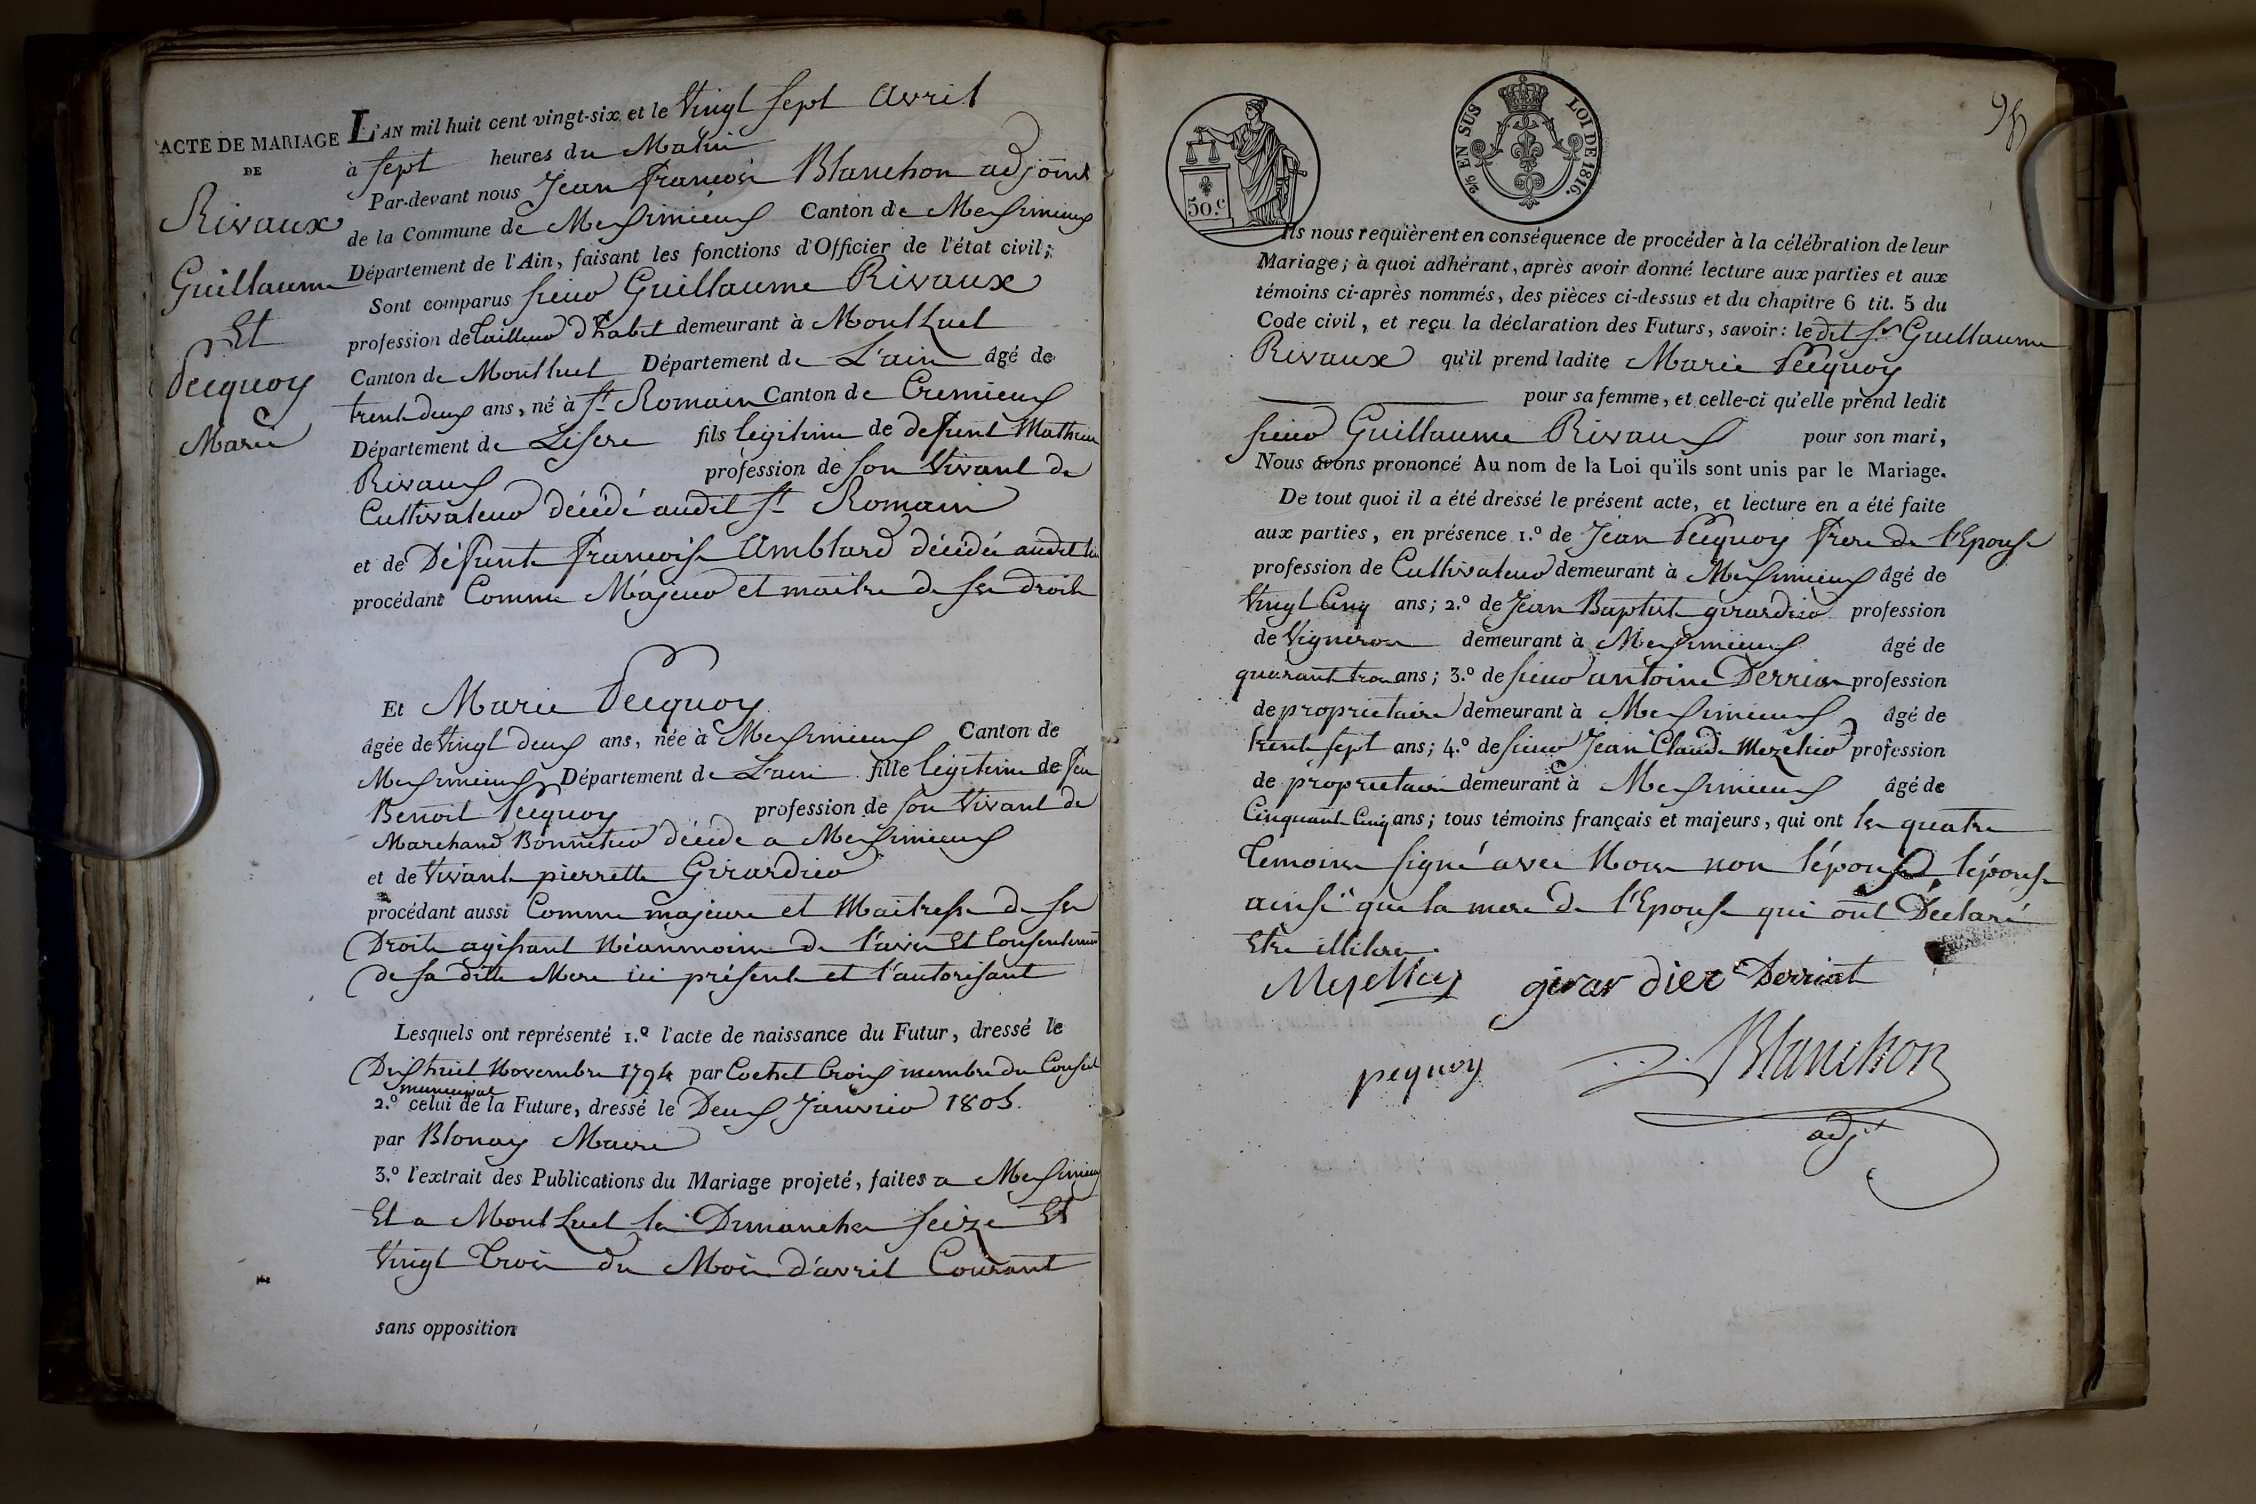 ACTE DE MARIAGE
DE
Rivaux
Guillaume
Et
Pecquoy
Marie
L'AN mil huit cent vingt-six, et le Vingt sept avril
à sept heures du Matin
Par-devant nous Jean François Blanchon adjoint
de la Commune de Messimieux Canton de Messimieux
Département de l'Ain, faisant les fonctions d'Officier de l'état civil;
Sont comparus sieur Guillaume Rivaux
profession de Tailleur d'habit demeurant à MontLuel
Canton de Montluel Département de L'ain âgé de
trente deux ans, né à St Romain Canton de Cremieux
Département de Lisere fils légitime de defunt Mathieu
Rivaux profession de son Vivant de
Cultivateur décédé audit St Romain
et de Défunte françoise Amblard décédée audit lieu
procédant Comme Majeur et maitre de ses droits
Et Marie Pecquoy
âgée de Vingt deux ans, née à Messimieux Canton de
Messimieux Département de L'ain fille légitime de feu
Benoit Pecquoy profession de son Vivant de
Marchand Bonnetier décédé a Messimieux
et de Vivante pierrette Girardier
procédant aussi Comme majeure et Maitresse de ses
Droits agissant Néanmoins de l'avis Et Consentement
de sa dite Mere ici présente et l'autorisant
Lesquels ont représenté 1.º l'acte de naissance du Futur, dressé le
Dix huit Novembre 1794 par Cochet Croix membre du Conseil
municipal
2.º celui de la Future, dressé le Deux Janvier 1805.
par Blonay Maire
3.º l'extrait des Publications du Mariage projeté, faites a Messimieux
Et a MontLuel les Dimanches seize Et
Vingt trois du Mois d'avril Courant
sans opposition
50.c
2/5 EN SUS LOI DE 1816.
95
Ils nous requièrent en conséquence de procéder à la célébration de leur
Mariage; à quoi adhérant, après avoir donné lecture aux parties et aux
témoins ci-après nommés, des pièces ci-dessus et du chapitre 6 tit. 5 du
Code civil, et reçu la déclaration des Futurs, savoir: le dit Sr Guillaume
Rivaux qu'il prend ladite Marie Pecquoy
pour sa femme, et celle-ci qu'elle prend ledit
sieur Guillaume Rivaux pour son mari,
Nous avons prononcé Au nom de la Loi qu'ils sont unis par le Mariage.
De tout quoi il a été dressé le présent acte, et lecture en a été faite
aux parties, en présence 1.º de Jean Pecquoy frere de l'Epouse
profession de Cultivateur demeurant à Messimieux âgé de
Vingt Cinq ans; 2.º de Jean Baptiste girardier profession
de Vigneron demeurant à Messimieux âgé de
quarante trois ans; 3.º de sieur antoine Derriat profession
de proprietaire demeurant à Messimieux âgé de
trente sept ans; 4.º de sieur Jean Claude Mezelier profession
de proprietaire demeurant à Messimieux âgé de
Cinquante Cinq ans; tous témoins français et majeurs, qui ont les quatre
Temoins signé avec Nous non l'époux, l'épouse
ainsi que la mere de l'Epouse qui ont Déclaré
Etre illitere.
girardier Derriat
pequoy J. Blanchon
adjt